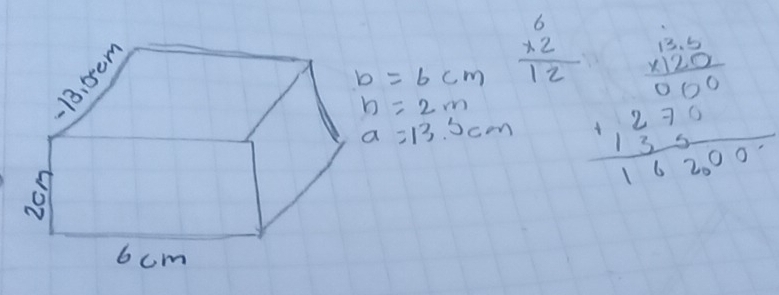 -13.5cm
2cm
6cm
b = 6cm
h = 2m
a = 13.5cm
6
x2
12
13.5
x120
000
+ 270
135
162.00